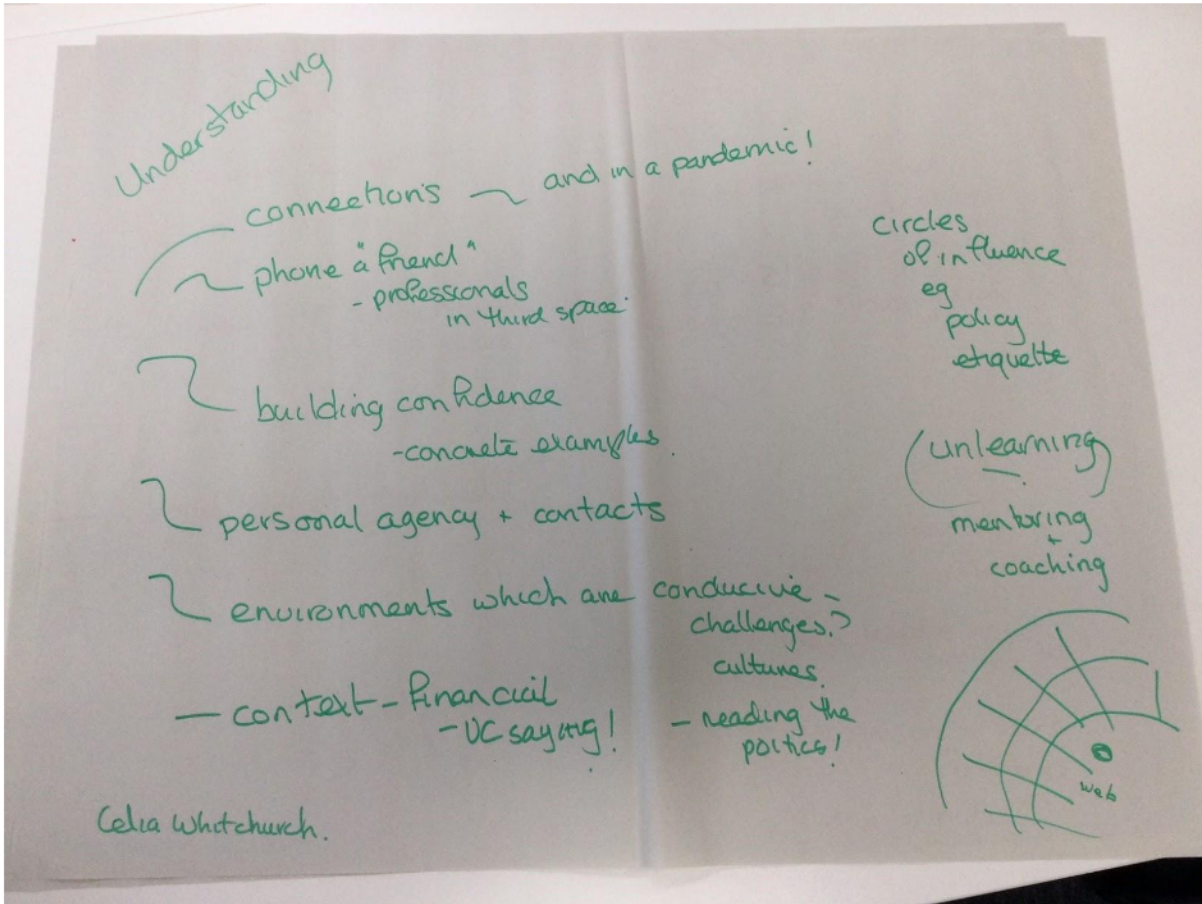 Understanding
connections ~ and in a pandemic!
phone "a friend"
- professionals
in third space
building confidence
- concrete examples.
personal agency + contacts
environments which are conducive -
challenges?
cultures
- context - financial
- VC saying!
- reading the
politics!
Celia Whitchurch.
circles
of influence
eg
policy
etiquette
(unlearning)
mentoring
+
coaching
web